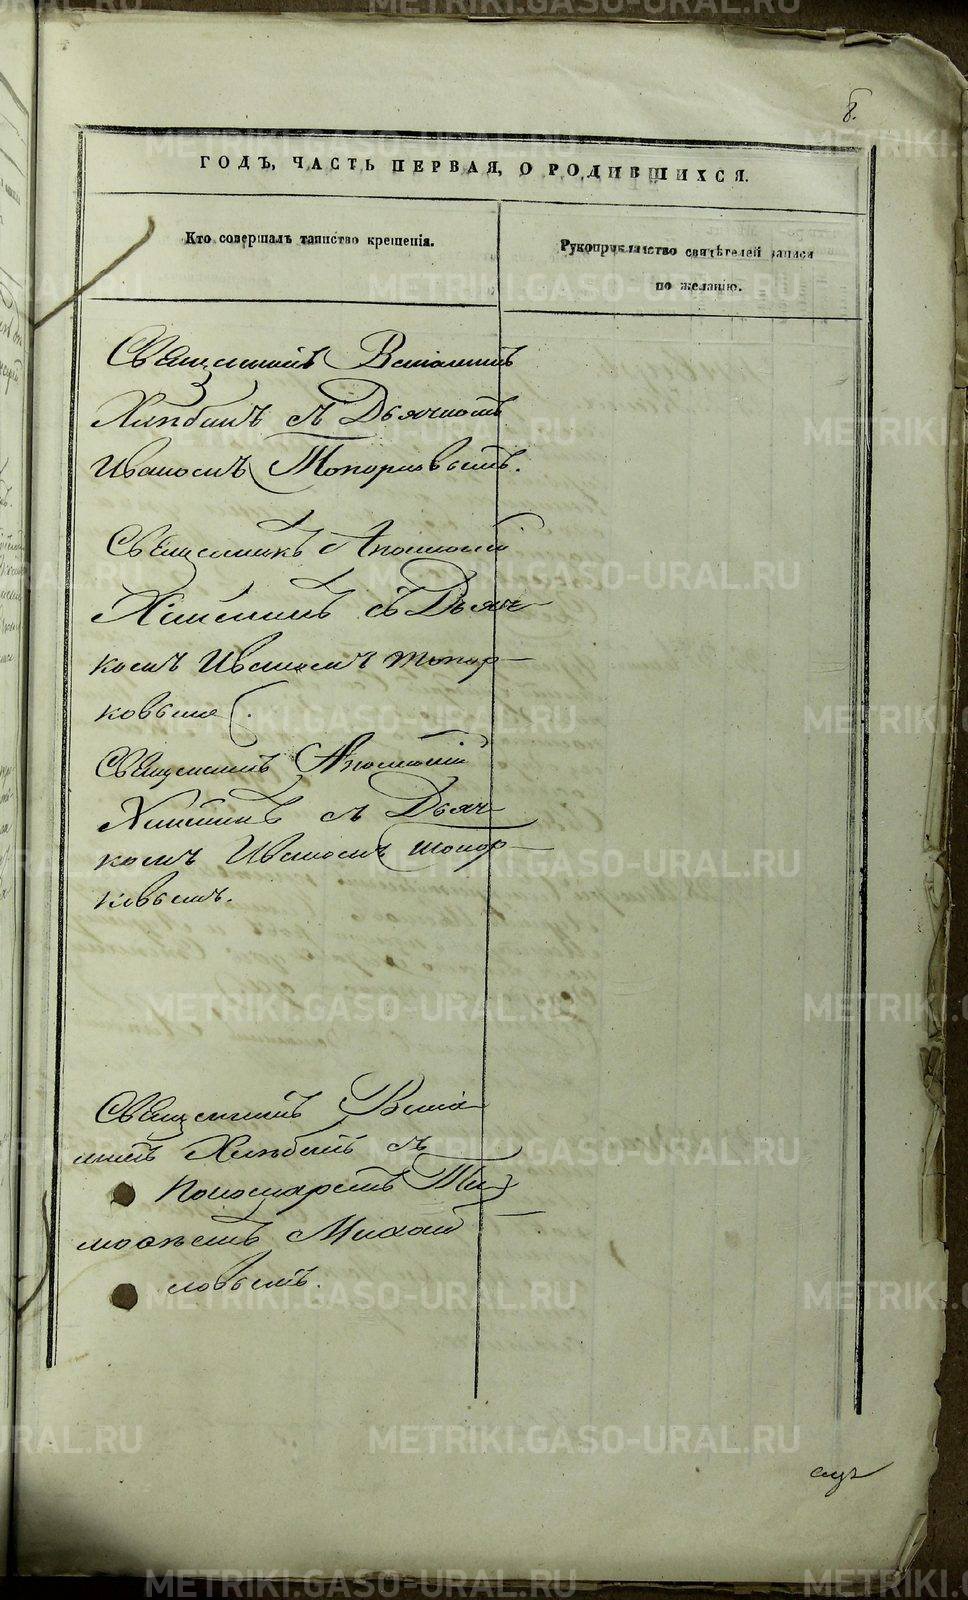 8.
ГОДЪ, ЧАСТЬ ПЕРВАЯ, О РОДИВШИХСЯ.
Кто совершалъ таинство крещенія.
Рукоприкладство свидѣтелей записи
по желанію.
Священникъ Веніаминъ
Хлѣбинъ съ Дьячкомъ
Иваномъ Топорковымъ.
Священникъ Аполлоній
съ Дьяч-
комъ Иваномъ Топор-
ковымъ.
Священникъ Аполлоній
съ Дьяч-
комъ Иваномъ Топор-
ковымъ.
Священникъ Веніа-
минъ Хлѣбинъ съ
Пономаремъ Ти-
моѳѣемъ Михай
ловымъ.
METRIKI.GASO-URAL.RU